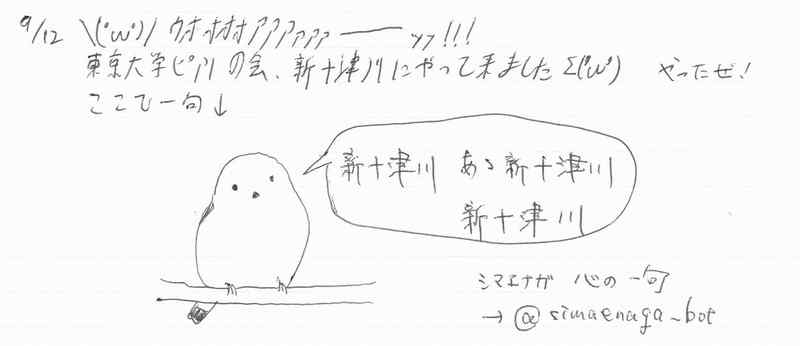 9/12 \('ω')/ ウオオオオアアアアアアーーッッ!!!
東京大学ピノリの会、新十津川にやって来ましたΣ('ω') やったぜ!
ここで一句↓
新十津川 あゝ新十津川
新十津川
シマエナガ 心の一句
→@simaenaga_bot